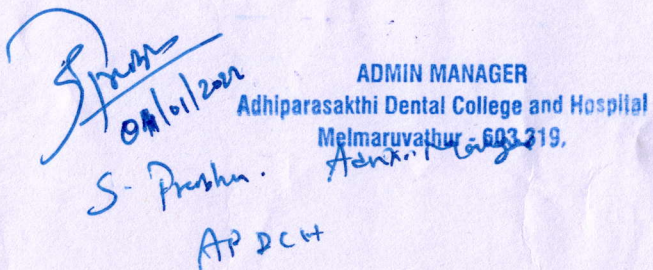 04/01/2022
ADMIN MANAGER
Adhiparasakthi Dental College and Hospital
Melmaruvathur - 603 319.
S- Prabhu.
APDCH